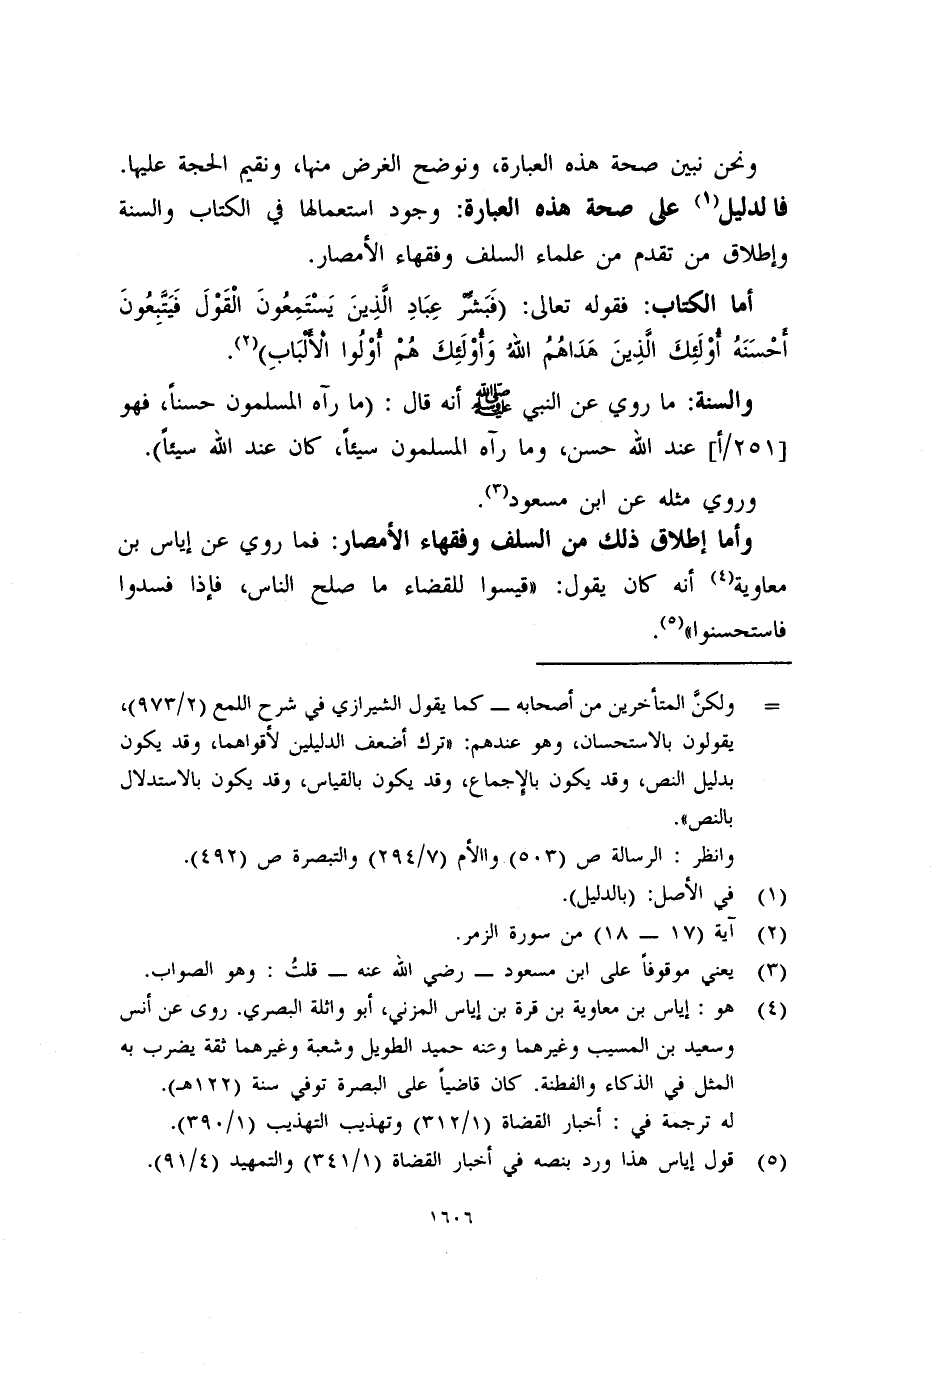 ونحن نبين صحة هذه العبارة، ونوضح الغرض منها، ونقيم الحجة عليها.
فالدليل(١) على صحة هذه العبارة: وجود استعمالها في الكتاب والسنة
وإطلاق من تقدم من علماء السلف وفقهاء الأمصار.
أما الكتاب: فقوله تعالى: (فَبَشِّرْ عِبَادِ الَّذِينَ يَسْتَمِعُونَ الْقَوْلَ فَيَتَّبِعُونَ
أَحْسَنَهُ أُوْلَئِكَ الَّذِينَ هَدَاهُمُ اللهُ وَأُوْلَئِكَ هُمْ أُوْلُوا الْأَلْبَابِ)(٢).
والسنة: ما روي عن النبي ﷺ أنه قال : (ما رآه المسلمون حسناً، فهو
[٢٥١/أ] عند الله حسن، وما رآه المسلمون سيئاً، كان عند الله سيئاً).
وروي مثله عن ابن مسعود(٣).
وأما إطلاق ذلك من السلف وفقهاء الأمصار: فما روي عن إياس بن
معاوية(٤) أنه كان يقول: «قيسوا للقضاء ما صلح الناس، فإذا فسدوا
فاستحسنوا»(٥).
= ولكنَّ المتأخرين من أصحابه ــ كما يقول الشيرازي في شرح اللمع (٩٧٣/٢)،
يقولون بالاستحسان، وهو عندهم: «ترك أضعف الدليلين لأقواهما، وقد يكون
بدليل النص، وقد يكون بالإجماع، وقد يكون بالقياس، وقد يكون بالاستدلال
بالنص».
وانظر : الرسالة ص (٥٠٣) واالأم (٢٩٤/٧) والتبصرة ص (٤٩٢).
(١) في الأصل: (بالدليل).
(٢) آية (١٧ ــ ١٨) من سورة الزمر.
(٣) يعني موقوفاً على ابن مسعود ــ رضي الله عنه ــ قلتُ : وهو الصواب.
(٤) هو : إياس بن معاوية بن قرة بن إياس المزني، أبو واثلة البصري. روى عن أنس
وسعيد بن المسيب وغيرهما وعنه حميد الطويل وشعبة وغيرهما ثقة يضرب به
المثل في الذكاء والفطنة. كان قاضياً على البصرة توفي سنة (١٢٢هـ).
له ترجمة في : أخبار القضاة (٣١٢/١) وتهذيب التهذيب (٣٩٠/١).
(٥) قول إياس هذا ورد بنصه في أخبار القضاة (٣٤١/١) والتمهيد (٩١/٤).
١٦٠٦